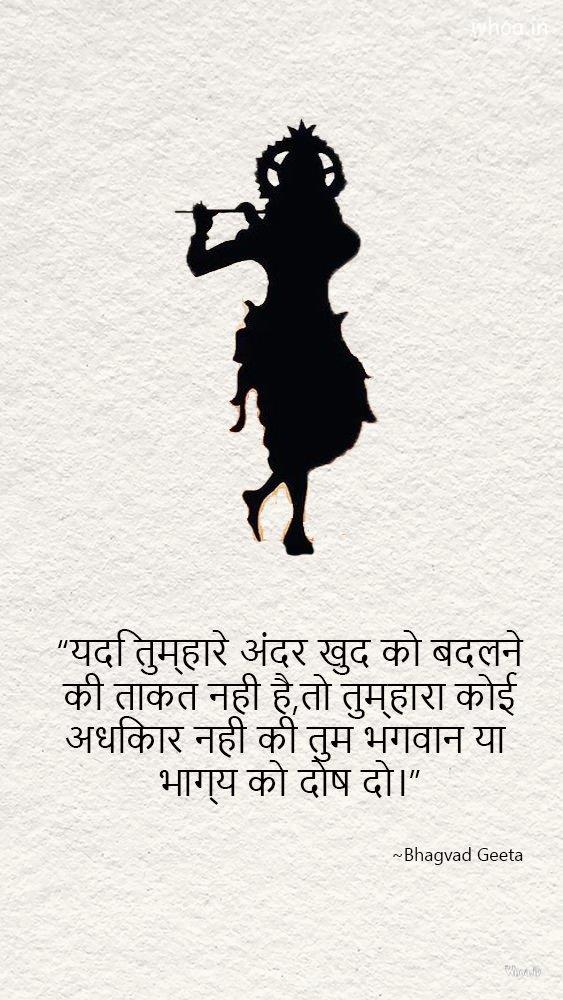 ivhoa.in
“यदि तुम्हारे अंदर खुद को बदलने
की ताकत नही है,तो तुम्हारा कोई
अधिकार नही की तुम भगवान या
भाग्य को दोष दो।”
~Bhagvad Geeta